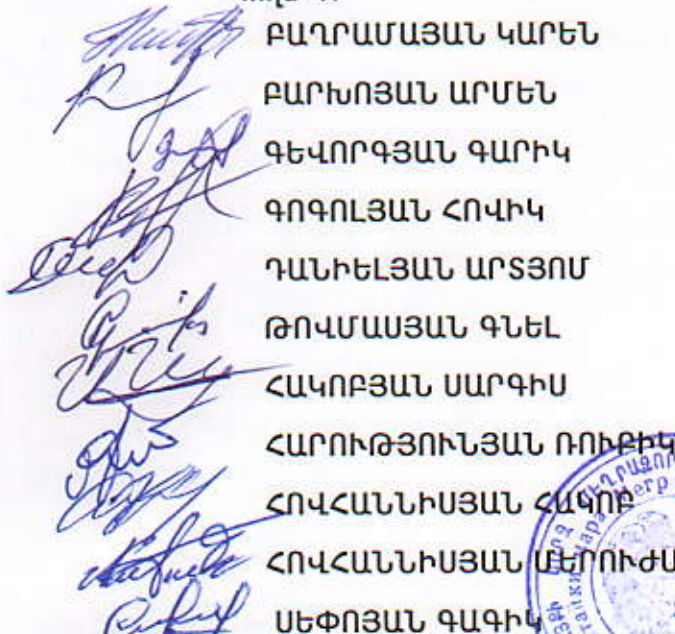 ԲԱՂՐԱՄԱՅԱՆ ԿԱՐԵՆ
ԲԱՐԽՈՅԱՆ ԱՐՄԵՆ
ԳԵՎՈՐԳՅԱՆ ԳԱՐԻԿ
ԳՈԳՈԼՅԱՆ ՀՈՎԻԿ
ԴԱՆԻԵԼՅԱՆ ԱՐՏՅՈՄ
ԹՈՎՄԱՍՅԱՆ ԳՆԵԼ
ՀԱԿՈԲՅԱՆ ՍԱՐԳԻՍ
ՀԱՐՈՒԹՅՈՒՆՅԱՆ ՌՈՒԲԻԿ
ՀՈՎՀԱՆՆԻՍՅԱՆ ՀԱԿՈԲ
ՀՈՎՀԱՆՆԻՍՅԱՆ ՄԵՐՈՒԺԱ
ՍԵՓՈՅԱՆ ԳԱԳԻԿ